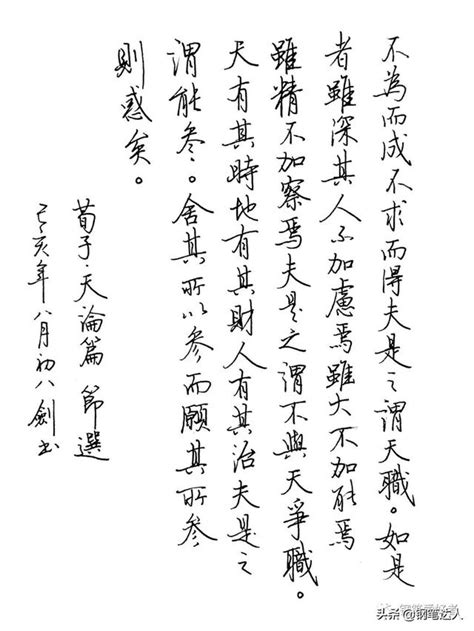 不為而成不求而得夫是之謂天職。如是
者雖深其人不加慮焉雖大不加能焉
雖精不加察焉夫是之謂不與天爭職。
天有其時地有其財人有其治夫是之
謂能參。舍其所以參而願其所參
則惑矣。
荀子·天論篇 節選
己亥年八月初八 劍書
头条 @钢笔达人